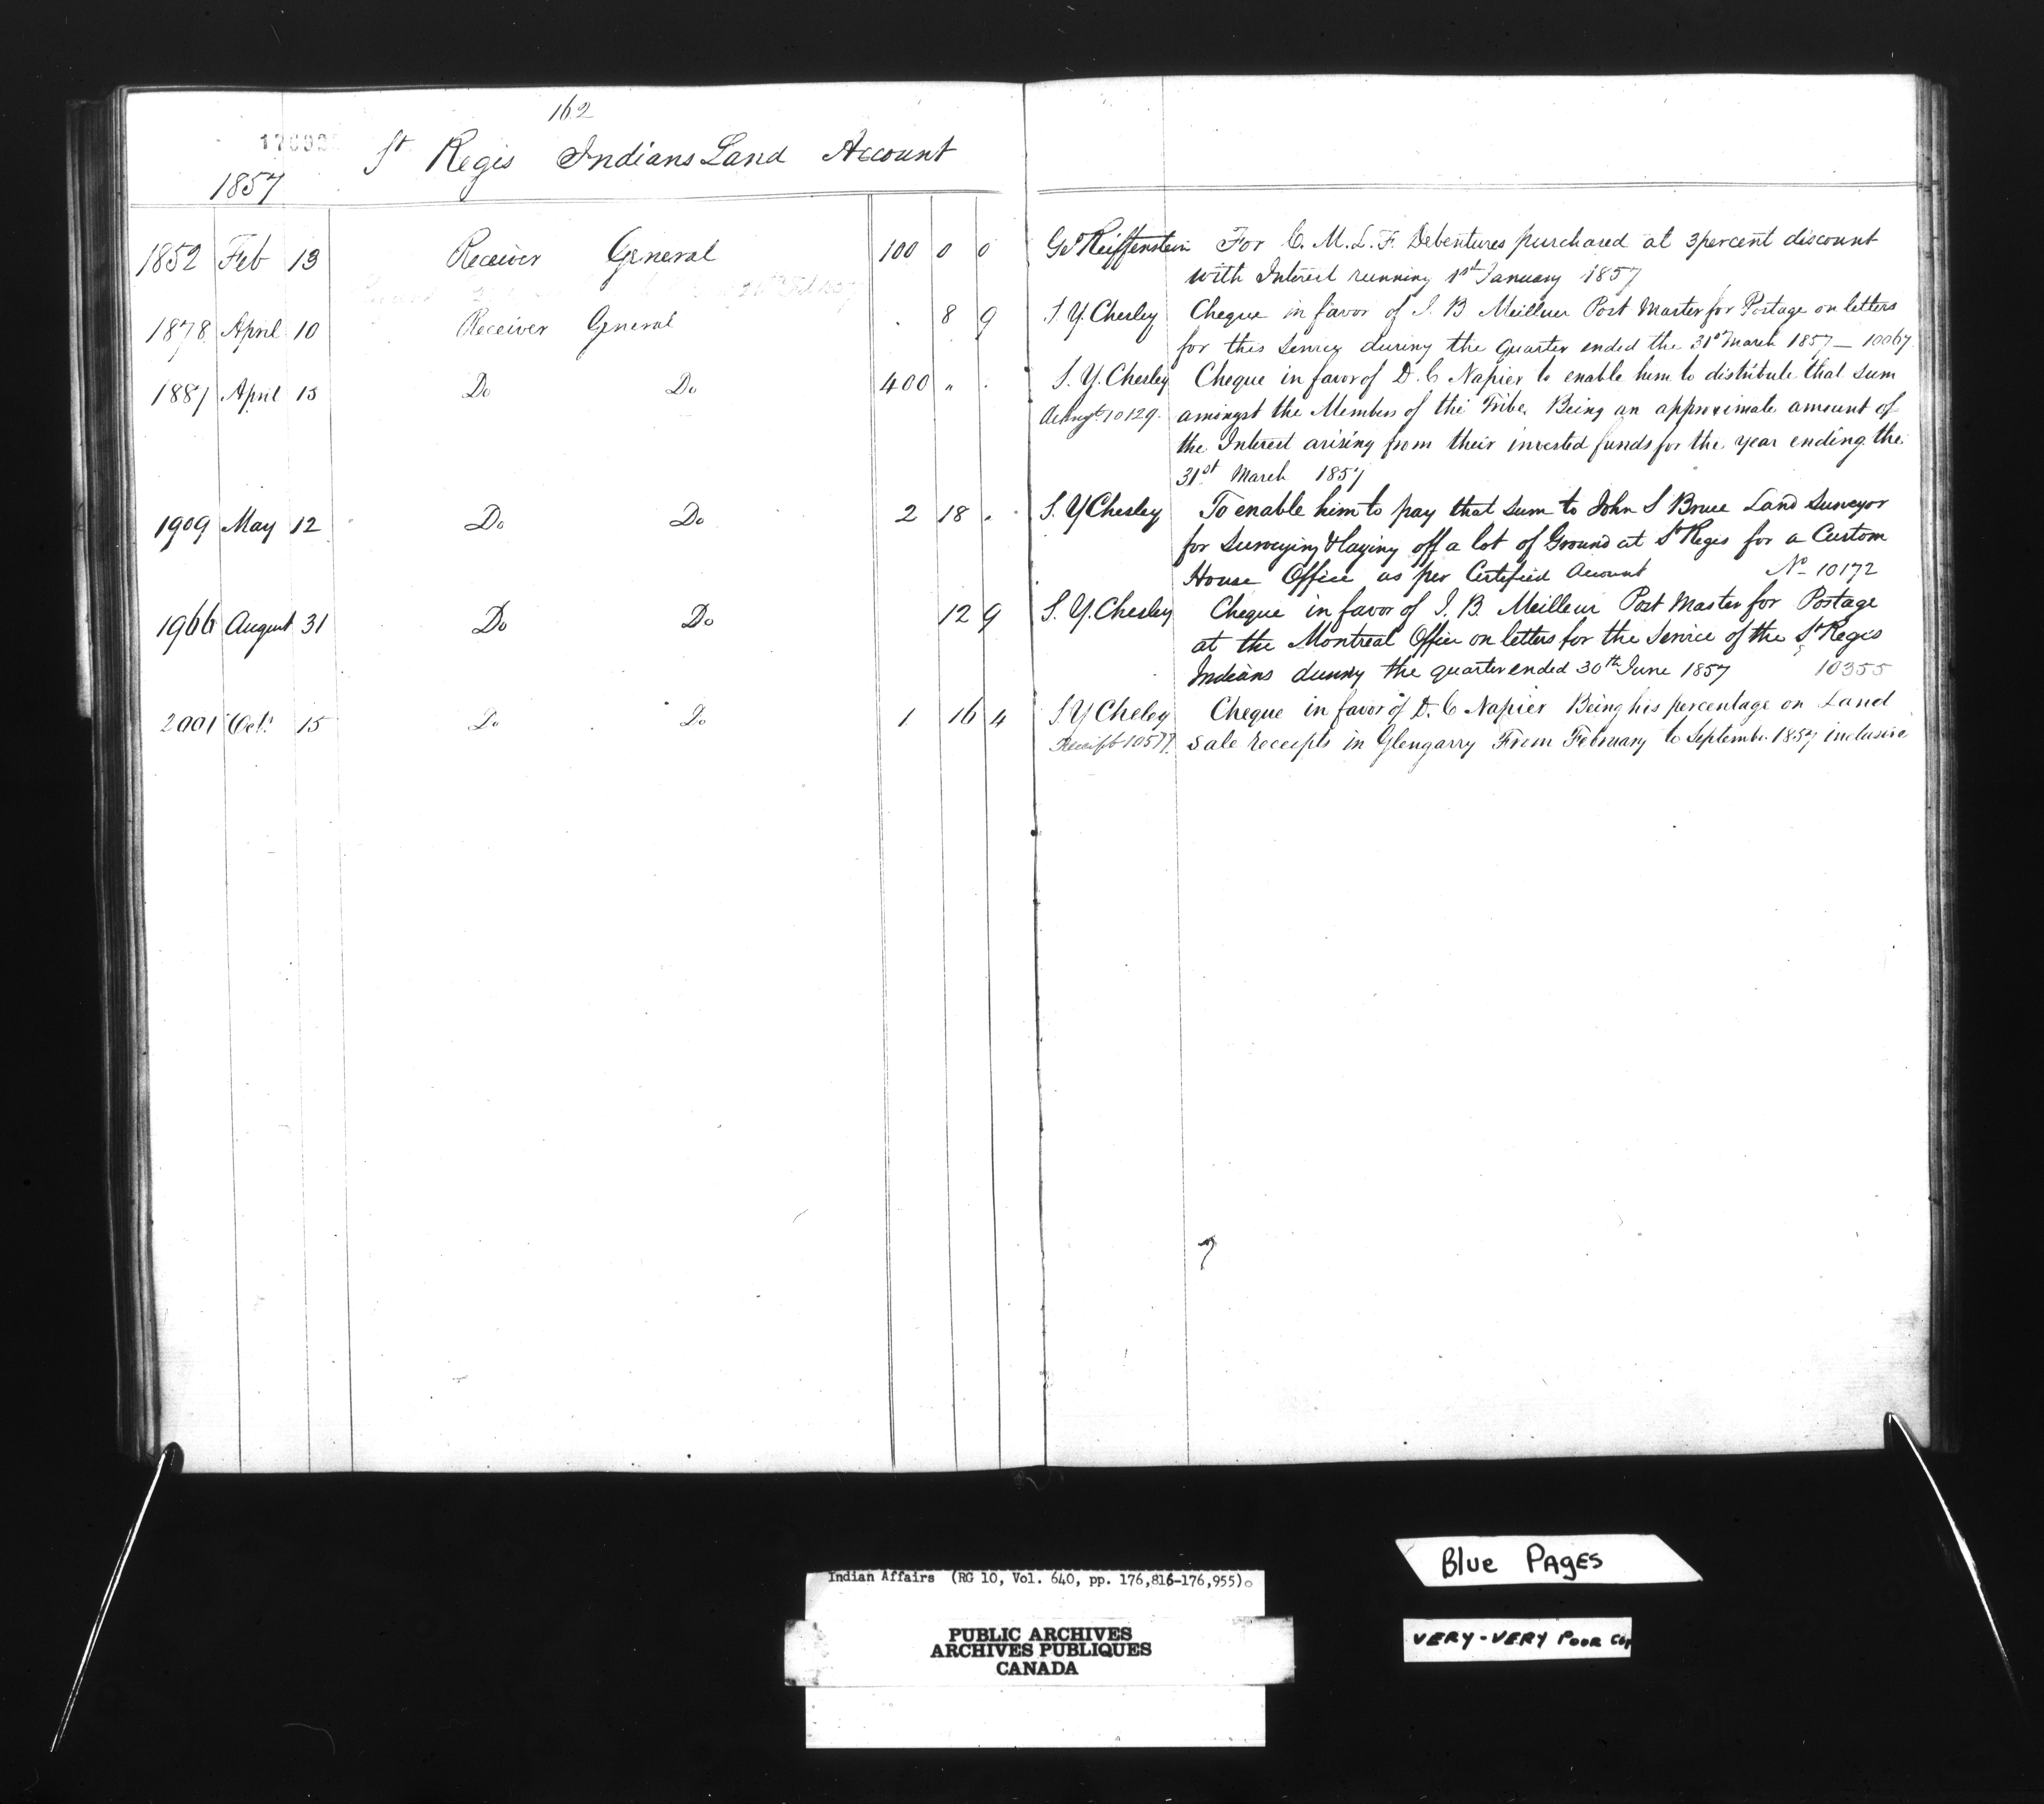 162
St Regis Indians Land Account
1857
1852 Feb 13 Receiver General 100 0 0 Geo Reiffenstein For C. M. L. F. Debentures purchased at 3 percent discount
with Interest running 1st January 1857
1878 April 10 Receiver General . 8 9 S. Y. Chesley Cheque in favor of J. B Meilleur Post Master for Postage on letters
for this Service during the quarter ended the 31st March 1857 — 10067
1887 April 15 Do Do 400 " . S. Y. Chesley Cheque in favor of D. C Napier to enable him to distribute that sum
10129. amongst the Members of the Tribe. Being an approximate amount of
the Interest arising from their invested funds for the year ending the
31st March 1857
1909 May 12 Do Do 2 18 . S. Y Chesley To enable him to pay that sum to John S Bruce Land Surveyor
for Surveying & laying off a lot of Ground at St Regis for a Custom
House Office as per Certified Account No 10172
1966 August 31 Do Do 12 9 S. Y. Chesley Cheque in favor of J. B. Meilleur Post Master for Postage
at the Montreal Office on letters for the Service of the St Regis
Indians during the quarter ended 30th June 1857 10355
2001 Oct. 15 Do Do 1 16 4 S Y Chesley Cheque in favor of D. C Napier Being his percentage on Land
Receipt sale receipts in Glengarry From February to September 1857 inclusive
Indian Affairs (RG 10, Vol. 640, pp. 176,816-176,955).
PUBLIC ARCHIVES
ARCHIVES PUBLIQUES
CANADA
Blue PAgES
VERY-VERY POOR COP